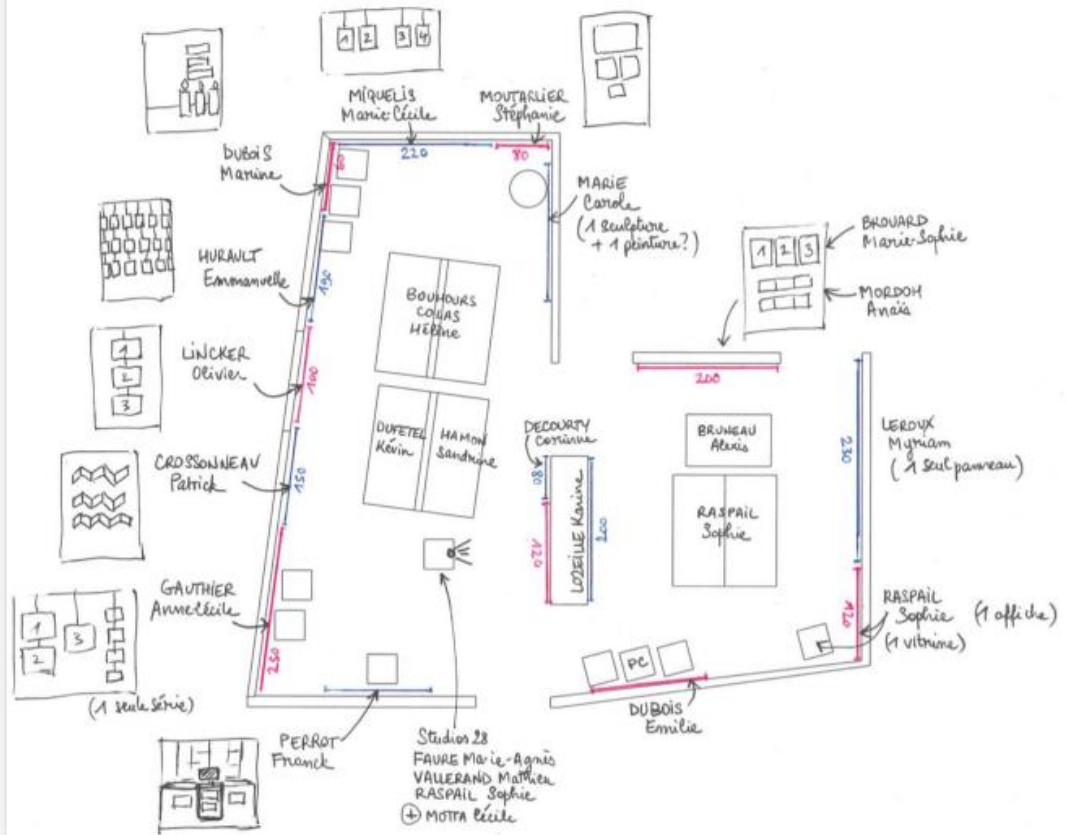 1 2 3 4
MIQUELIS
Marie-Cécile
MOUTARLIER
Stéphanie
DUBOIS
Marine
220
80
MARIE
Carole
(1 sculpture
+ 1 peinture?)
BROUARD
Marie-Sophie
1 2 3
MORDOH
Anaïs
HURAULT
Emmanuelle
190
BOUHOURS
COLAS
Hélène
LINCKER
Olivier
1
2
3
100
200
DUFETEL
Kévin
HAMON
Sandrine
DECOURTY
Corinne
BRUNEAU
Alexis
LEROUX
Myriam
(1 seul panneau)
230
CROSSONNEAU
Patrick
150
80
120
LOZEILLE Karine
200
RASPAIL
Sophie
GAUTHIER
Anne Cécile
1
2
3
250
(1 seule série)
120
RASPAIL
Sophie (1 affiche)
(1 vitrine)
PC
DUBOIS
Emilie
PERROT
Franck
Studios 28
FAURE Marie-Agnès
VALLERAND Matthieu
RASPAIL Sophie
+ MOTTA Cécile